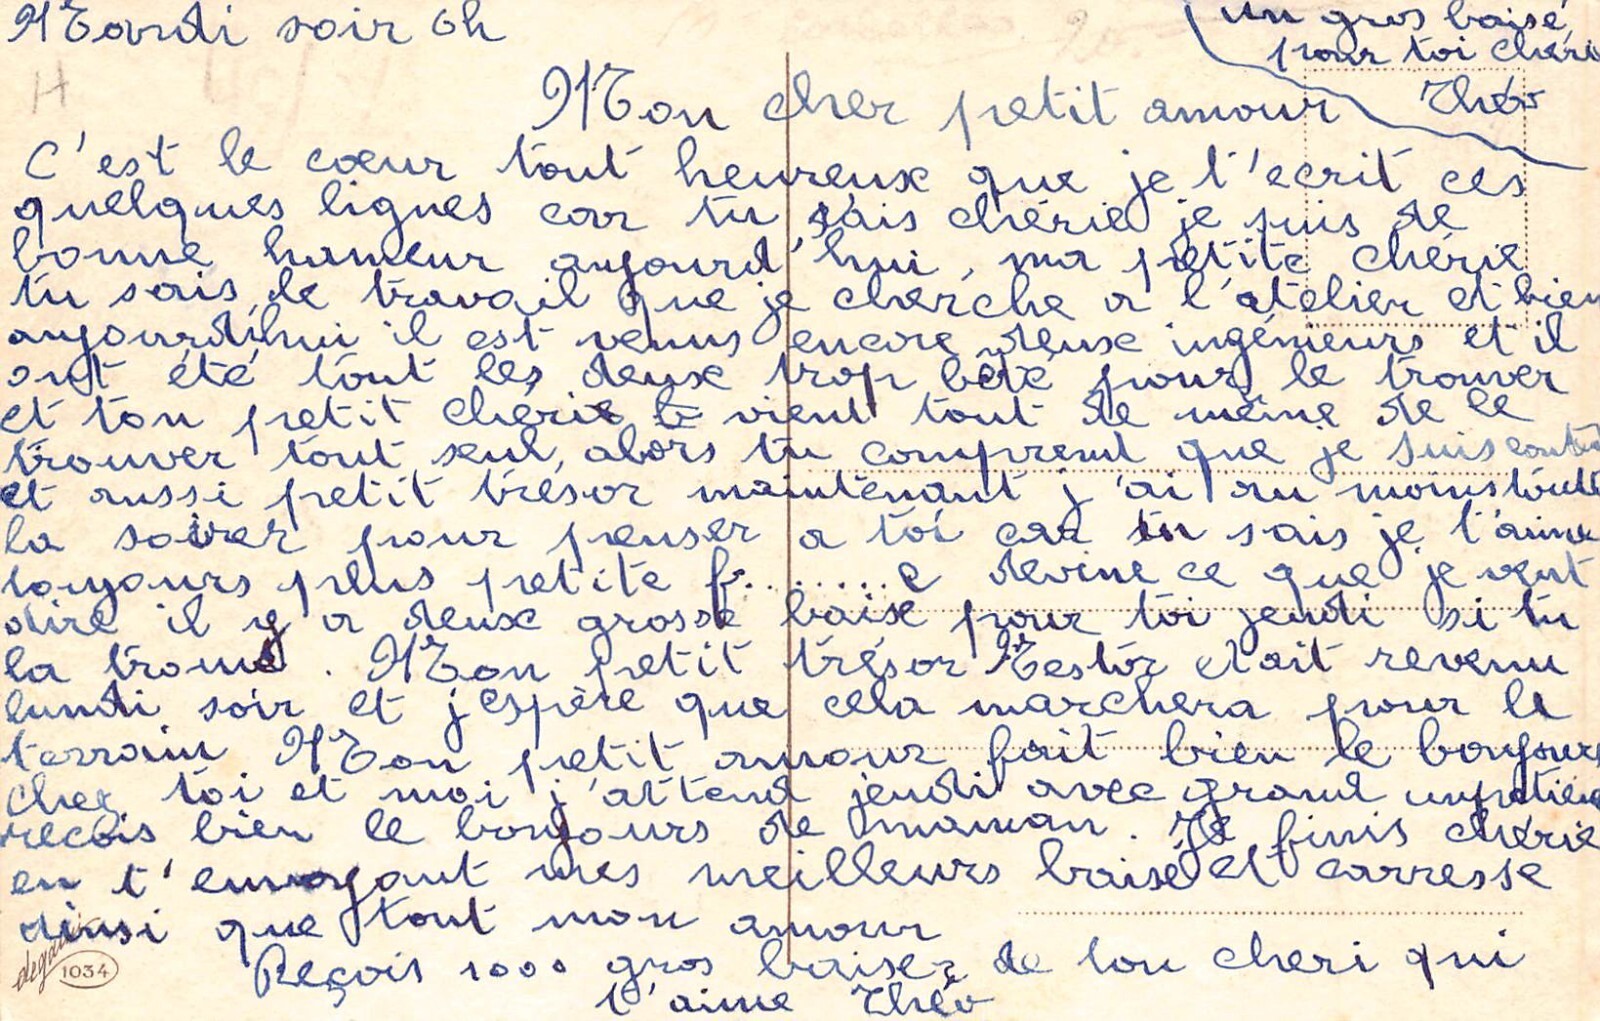 Mardi soir 6h
Un gros baisé
pour toi chéri
Théo
H
Mon cher petit amour
C'est le cœur tout heureux que je t'ecrit ces
quelques lignes car tu sais chérie je suis de
bonne humeur aujourd'hui, ma petite chérie
tu sais le travail que je cherche a l'atelier et bien
aujourd'hui il est venus encore deux ingénieurs et il
ont été tout les deux trop bête pour le trouver
et ton petit chérie vient tout de même de le
trouver tout seul, alors tu comprend que je suis
et aussi petit trésor maintenant j'ai au moins toute
la soirer pour penser a toi car tu sais je t'aime
toujours plus petite f........e devine ce que je veut
dire il y a deux grosse baise pour toi jeudi si tu
la trouve. Mon petit trésor Nestor etait revenu
lundi soir et j'espère que cela marchera pour le
terrain Mon petit amour fait bien le bonjours
chez toi et moi j'attend jeudi avec grand
recois bien le bonjours de maman. Je finis chérie
en t'envoyant mes meilleurs baisé et carresse
ainsi que tout mon amour
Reçois 1000 gros baiser de ton cheri qui
t'aime Théo
1034